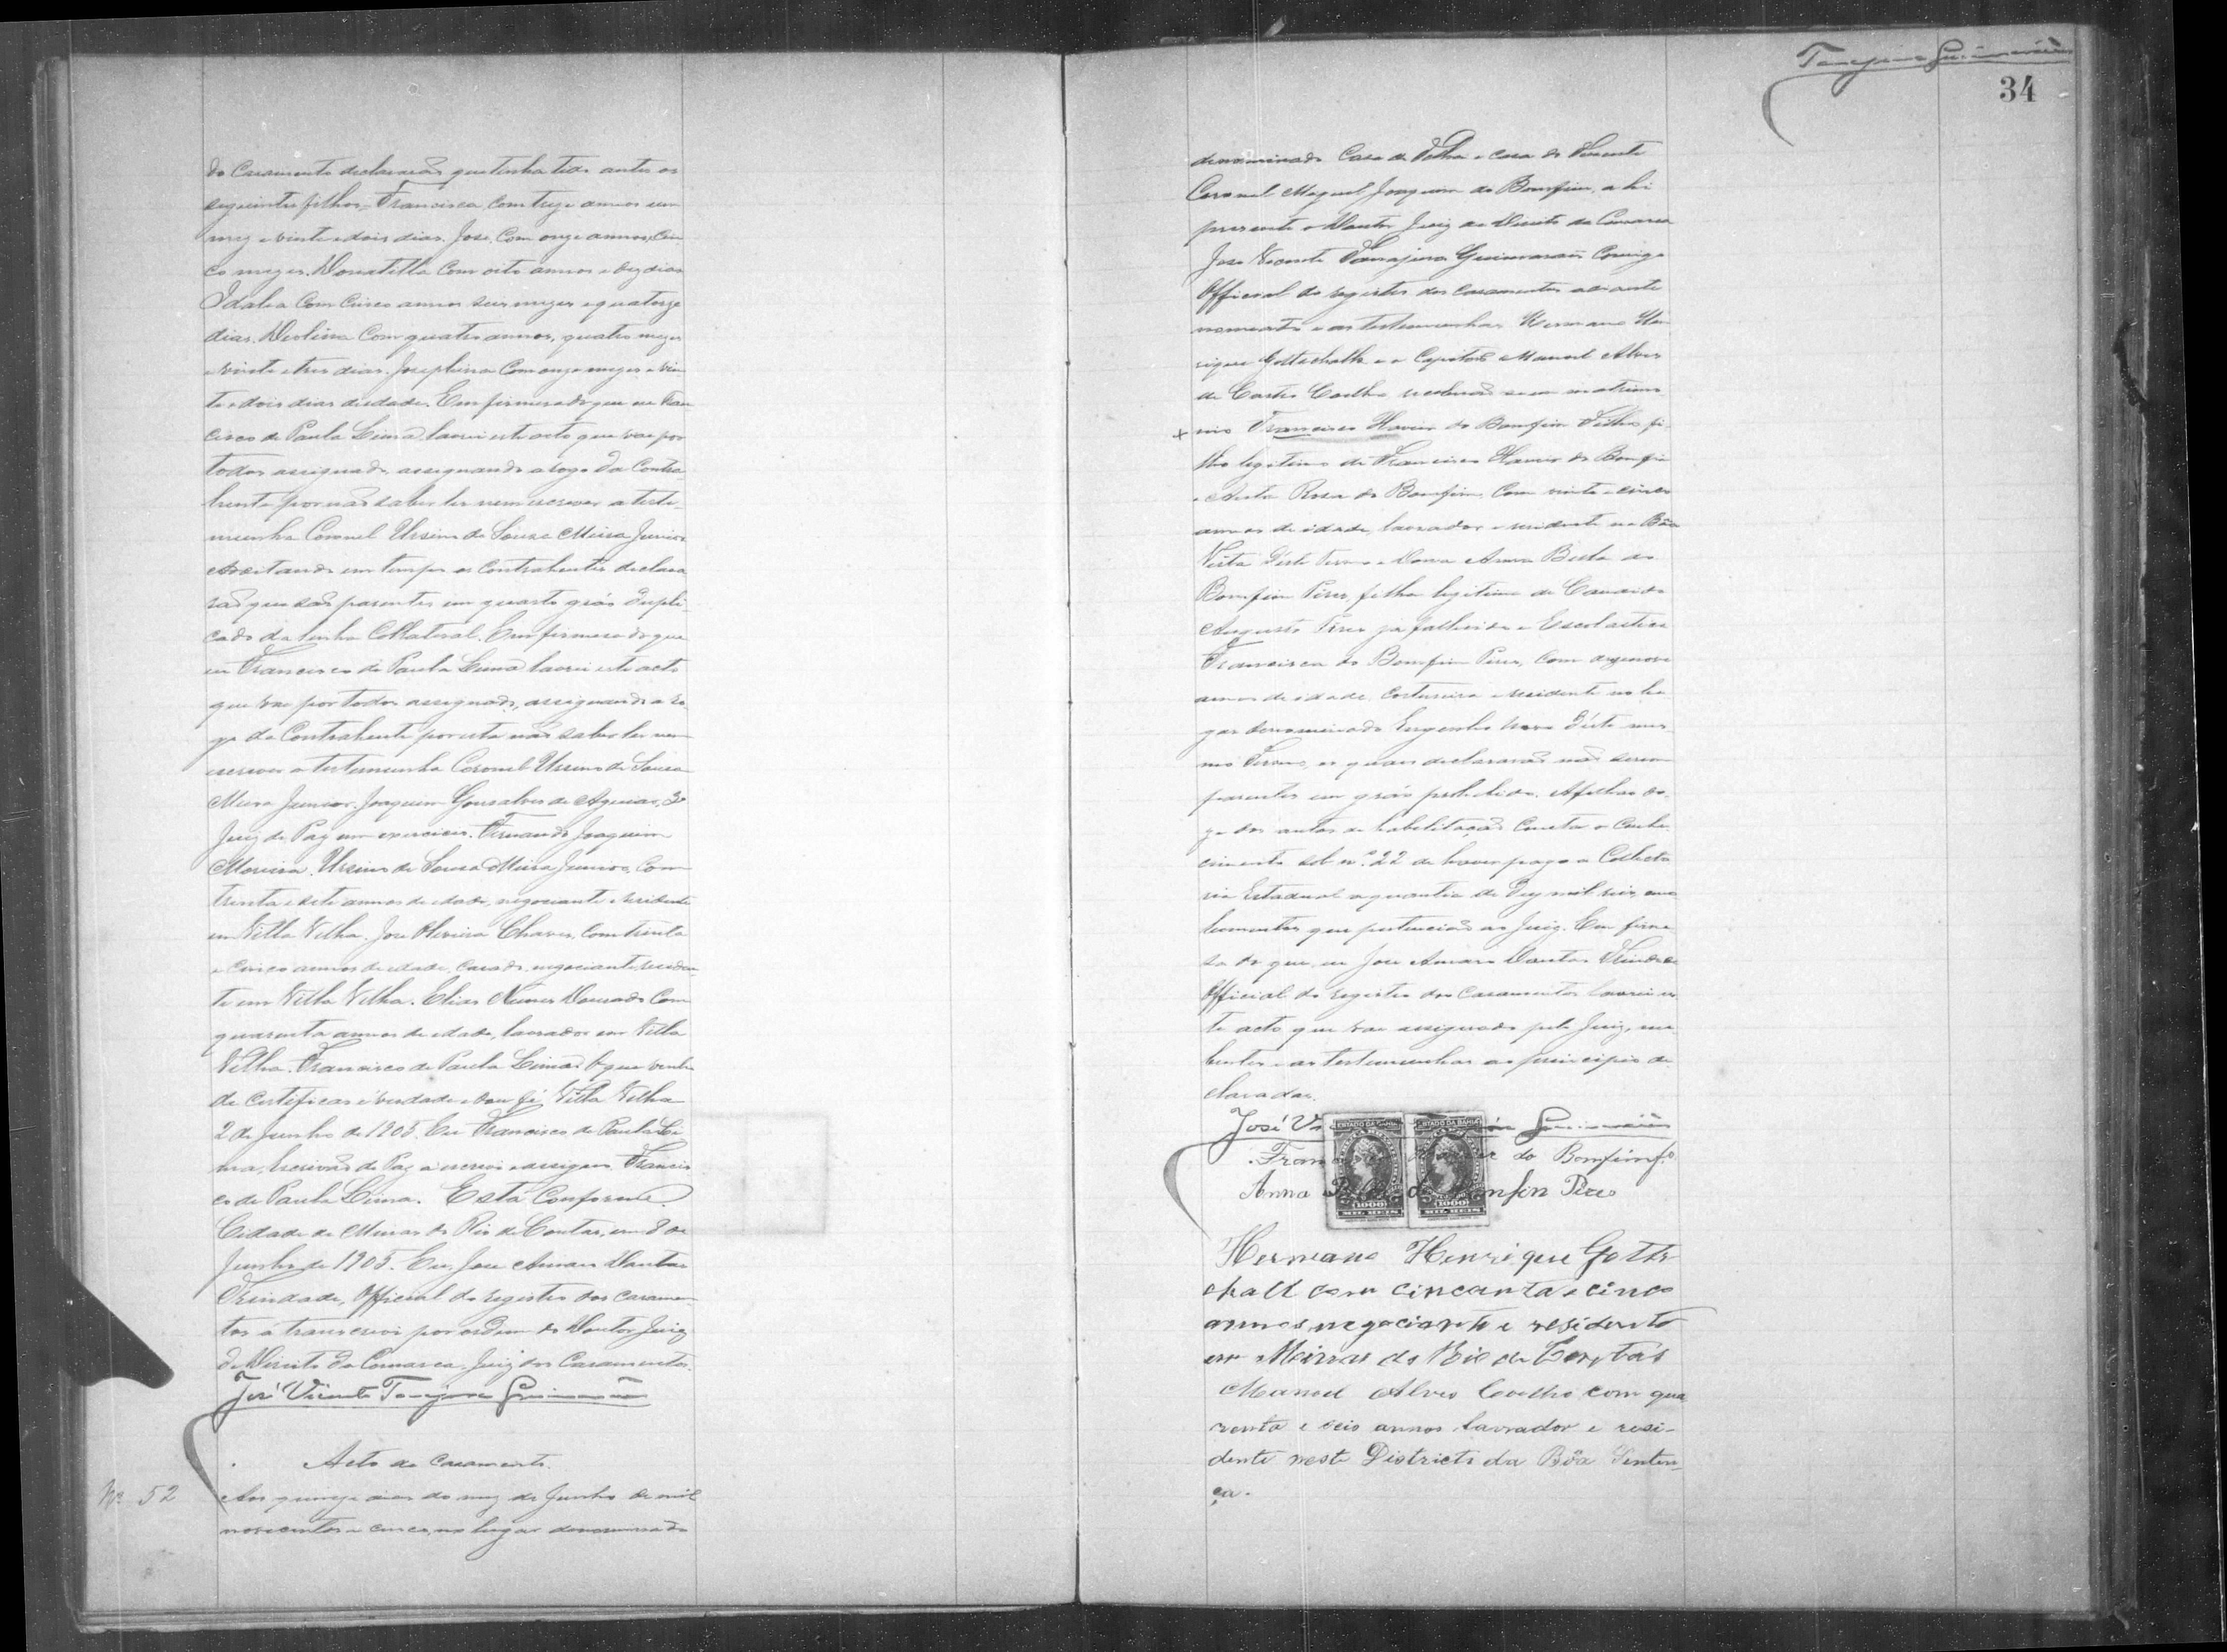 do Casamento declararaõ que tinha tido antes os
seguintes filhos = Francisca, com treze annos um
mez e vinte e dois dias. José, com onze annos, cin
co mezes. Donatilla com oito annos e dez dias
Idalia com cinco annos seis mezes e quatorze
dias. Deolina com quatro annos, quatro mezes
e vinte e tres dias. Josephina com onze mezes e vin
te e dois dias de idade. Em firmesa do que eu Fran
cisco de Paula Lima lavrei este acto que vae por
todos assignado, assignando a rogo da Contra
hente por naõ saber ler nem escrever a teste
munha Coronel Ursino de Sousa Meira Junior
Acceitando em tempo os Contrahentes declara
raõ que saõ parentes em quarto gráo dupli
cado da linha Collateral. Em firmesa do que
eu Francisco de Paula Lima lavrei este acto
que vae por todos assignado, assignando a ro
go da Contrahente por esta naõ saber ler nem
escrever a testemunha Coronel Ursino de Sousa
Meira Junior. Joaquim Gonsalves de Aguiar, 3º
Juiz de Paz em exercicio. Fernando Joaquim
Moreira. Ursino de Sousa Meira Junior, com
trinta e sete annos de idade, negociante e residente
em Villa Velha. José Oliveira Chaves, com trinta
e cinco annos de idade, casado, negociante, residen
te em Villa Velha. Elias Nunes Dourado com
quarenta annos de idade, lavrador em Villa
Velha. Francisco de Paula Lima. O que venho
de certificar é verdade e dou fé. Villa Velha
2 de Junho de 1905. Eu Francisco de Paula Li
ma, Escrivaõ de Paz o escrevi e assigno. Francis
co de Paula Lima. Está Conforme.
Cidade de Minas do Rio de Contas, em 8 de
Junho de 1905. Eu, José Amaro Dantas
Trindade, Official do registro dos casamen
tos o transcrevi por ordem do Doutor Juiz
de Direito da Comarca, Juiz dos Casamentos.
José Vicente Tanajura Guimarães
Acto de Casamento.
Nº 52
Aos quinze dias do mez de Junho de mil
novecentos e cinco, no lugar denominado
Tanajura Guimarães
34
denominado Casa de Telha e casa do Tenente
Coronel Miguel Joaquim do Bomfim, ahi
presente o Doutor Juiz de Direito da Comarca
José Vicente Tanajura Guimarães Comigo
Official do registro dos casamentos adiante
nomeado e as testemunhas Hermano Hen
rique Gottschalk e o Capitaõ Manoel Alves
de Castro Coelho receberaõ se em matrimo
+ nio Francisco Xavier do Bomfim Filho fi
lho legitimo de Francisco Xavier do Bomfim
e Rosa do Bomfim, com vinte e cinco
annos de idade, lavrador e residente na Bôa
Vista déste Termo e Dona Anna Bella do
Bomfim Pires, filha legitima de Candido
Augusto Pires já fallecido e Escolastica
Francisca do Bomfim Pires, com dezenove
annos de idade, costureira e residente no lu
gar denominado Engenho Novo déste mes
mo Termo, os quaes declararaõ naõ serem
parentes em gráo prohibido. A folhas do
ze dos autos de habilitaçaõ consta o conhe
cimento sob nº 22 de haver pago a Collecto
ria Estadual a quantia de Dez mil reis, emo
lumentos que pertenciaõ ao Juiz. Em firme
sa do que, eu José Amaro Dantas Trindade
Official do registro dos Casamentos lavrei es
te acto, que vae assignado pelo Juiz, nu
bentes e as testemunhas ao principio de
claradas.
José Vi Guimarães
ESTADO DA BAHIA ESTADO DA BAHIA
Francisco Xavier do Bomfim fº
Anna do Bomfim Pires
(1000) (1000)
MIL REIS MIL REIS
Hermano Henrique Gotts
chalk com cincoenta e cinco
annos negociante e residente
em Minas do Rio de Contas
Manoel Alves Coelho com qua
renta e seis annos lavrador e resi-
dente neste Districto da Bôa Senten
ça.